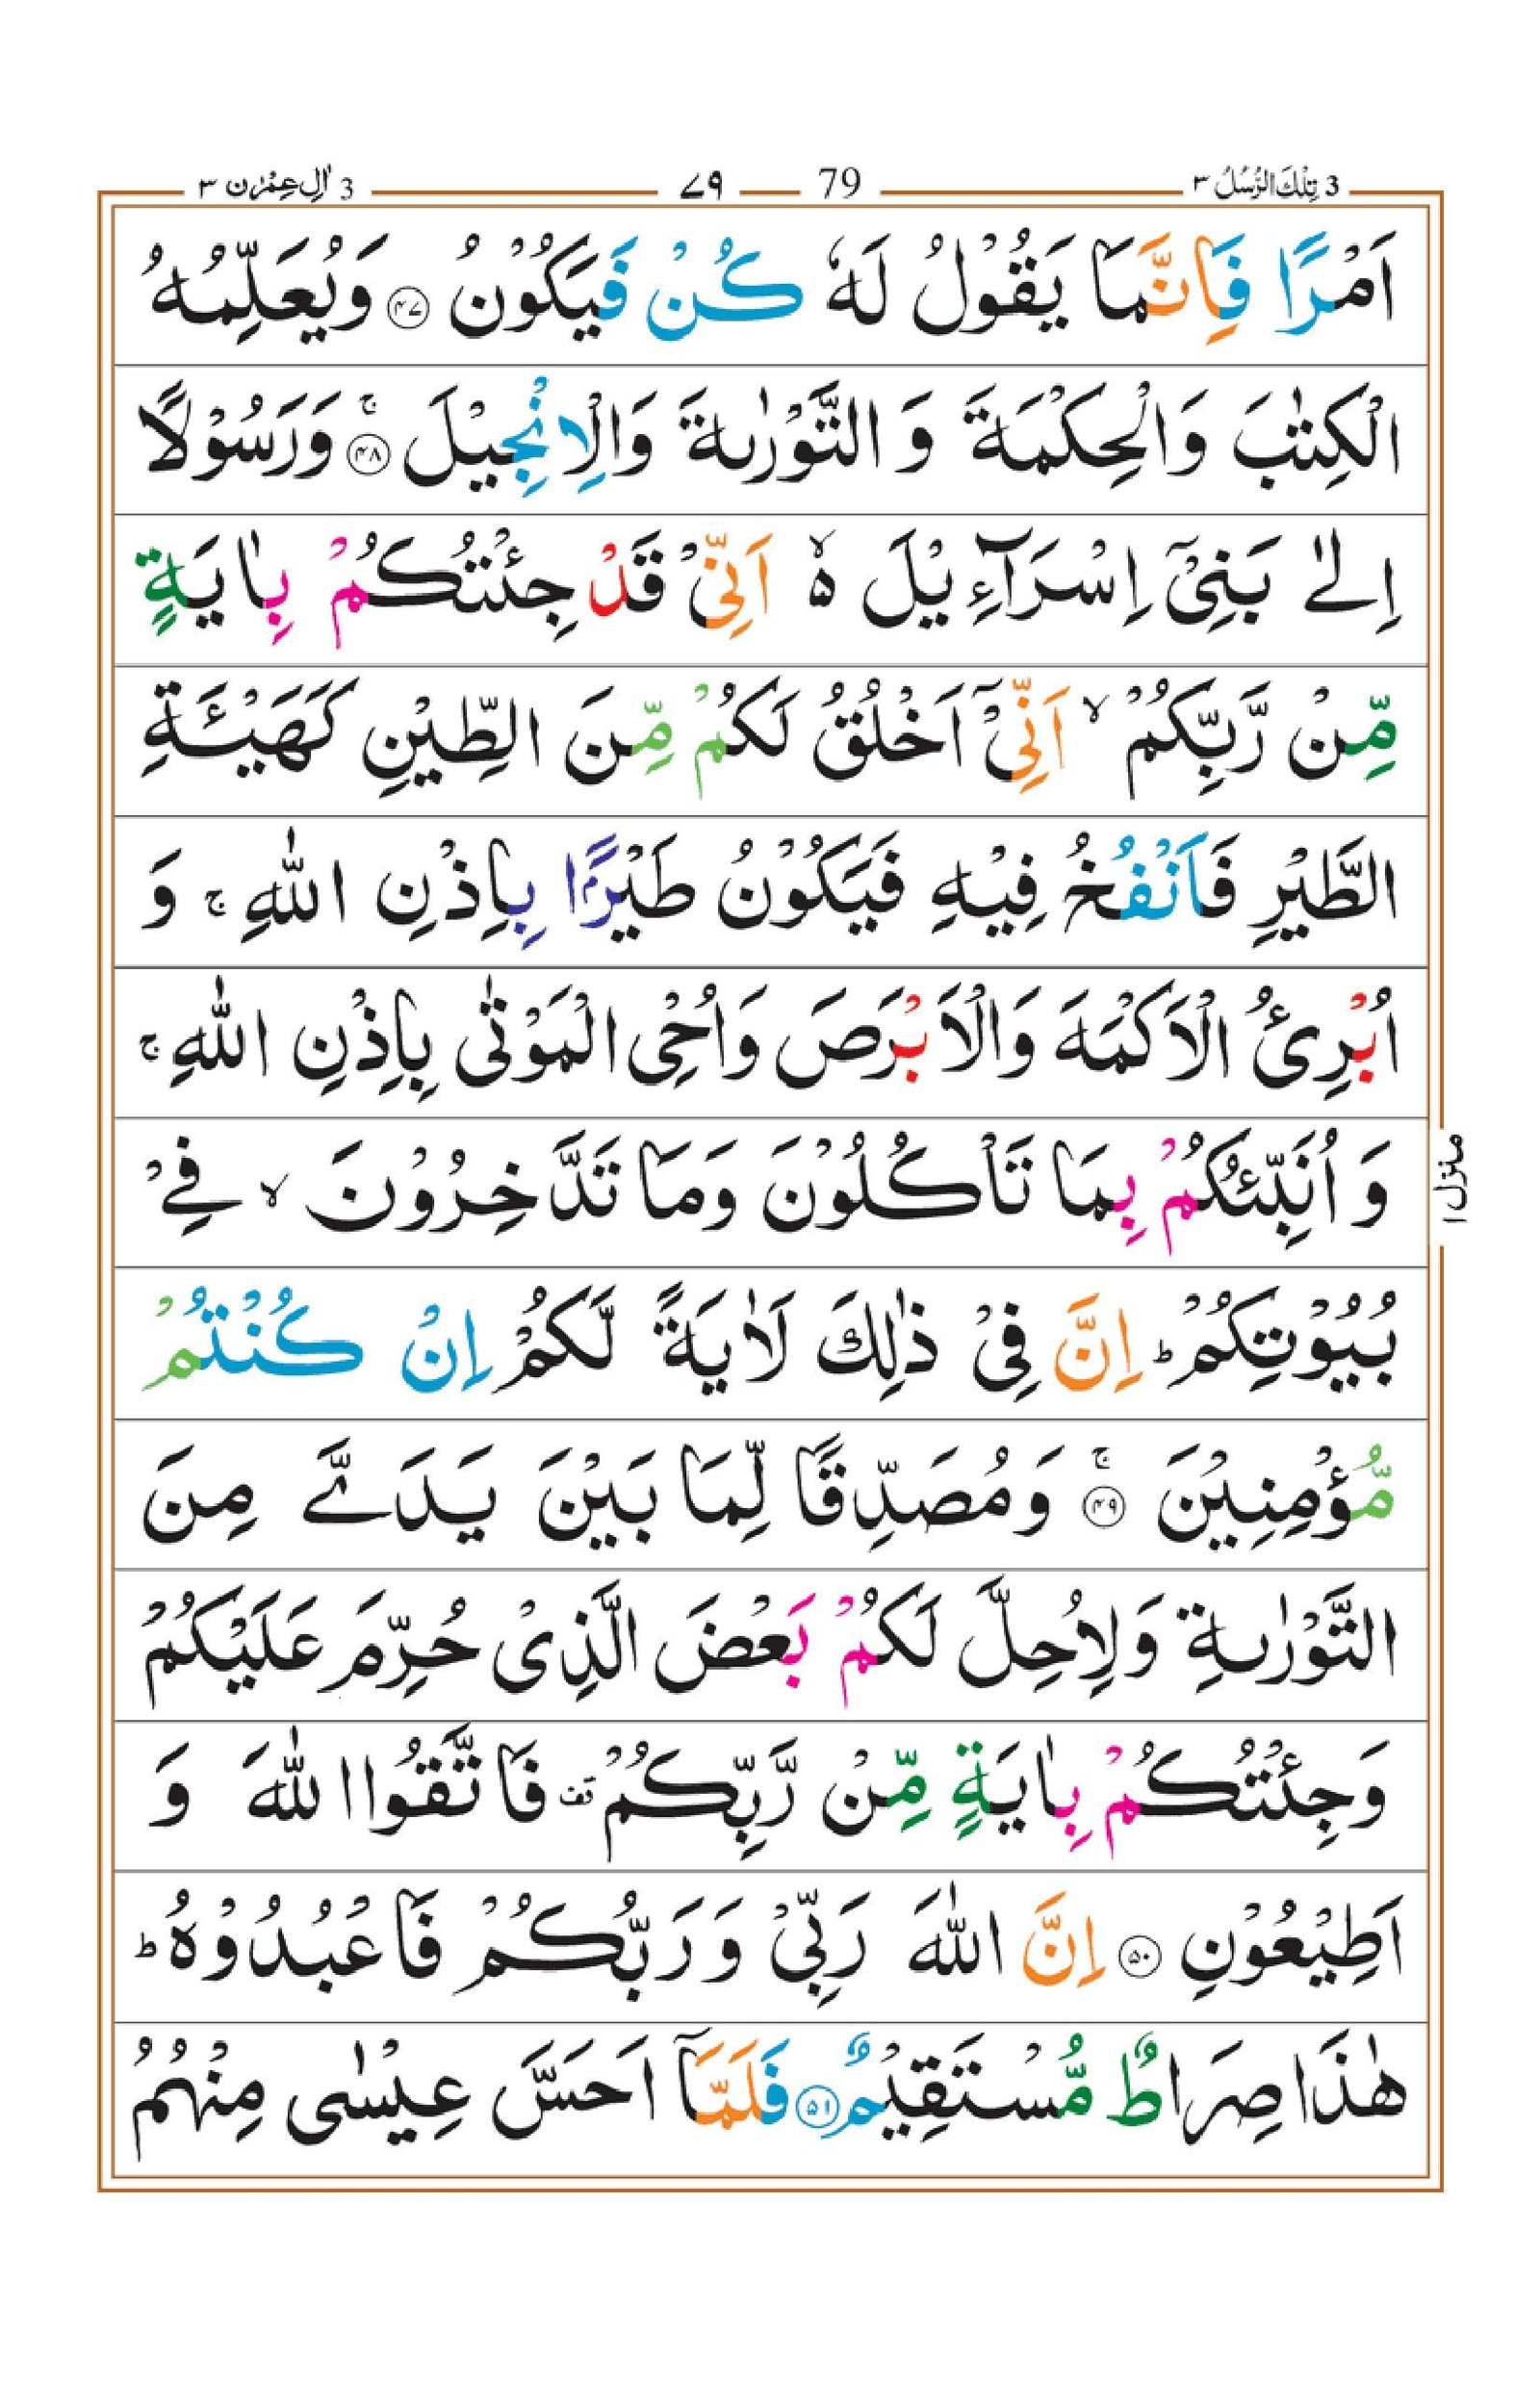 3 تِلْكَ الرُّسُلُ ٣
79 ٧٩
3 اٰلِ عِمْرٰن ٣
اَمْرًا فَاِنَّمَا يَقُوْلُ لَهٗ كُنْ فَيَكُوْنُ ﴿۴۷﴾ وَيُعَلِّمُهُ
الْكِتٰبَ وَالْحِكْمَةَ وَ التَّوْرٰىةَ وَالْاِنْجِيْلَ ۚ ﴿۴۸﴾ وَرَسُوْلًا
اِلٰى بَنِيْۤ اِسْرَآءِيْلَ ۙ۬ اَنِّيْ قَدْ جِئْتُكُمْ بِاٰيَةٍ
مِّنْ رَّبِّكُمْ ۙ اَنِّيْۤ اَخْلُقُ لَكُمْ مِّنَ الطِّيْنِ كَهَيْـَٔةِ
الطَّيْرِ فَاَنْفُخُ فِيْهِ فَيَكُوْنُ طَيْرًۢا بِاِذْنِ اللّٰهِ ۚ وَ
اُبْرِئُ الْاَكْمَهَ وَالْاَبْرَصَ وَاُحْيِ الْمَوْتٰى بِاِذْنِ اللّٰهِ ۚ
وَ اُنَبِّئُكُمْ بِمَا تَاْكُلُوْنَ وَمَا تَدَّخِرُوْنَ ۙ فِيْ
بُيُوْتِكُمْ ؕ اِنَّ فِيْ ذٰلِكَ لَاٰيَةً لَّكُمْ اِنْ كُنْتُمْ
مُّؤْمِنِيْنَ ۚ ﴿۴۹﴾ وَ مُصَدِّقًا لِّمَا بَيْنَ يَدَيَّ مِنَ
التَّوْرٰىةِ وَلِاُحِلَّ لَكُمْ بَعْضَ الَّذِيْ حُرِّمَ عَلَيْكُمْ
وَجِئْتُكُمْ بِاٰيَةٍ مِّنْ رَّبِّكُمْ قف فَاتَّقُوا اللّٰهَ وَ
اَطِيْعُوْنِ ﴿۵۰﴾ اِنَّ اللّٰهَ رَبِّيْ وَرَبُّكُمْ فَاعْبُدُوْهُ ؕ
هٰذَا صِرَاطٌ مُّسْتَقِيْمٌ ﴿۵۱﴾ فَلَمَّاۤ اَحَسَّ عِيْسٰى مِنْهُمُ
منزل ١